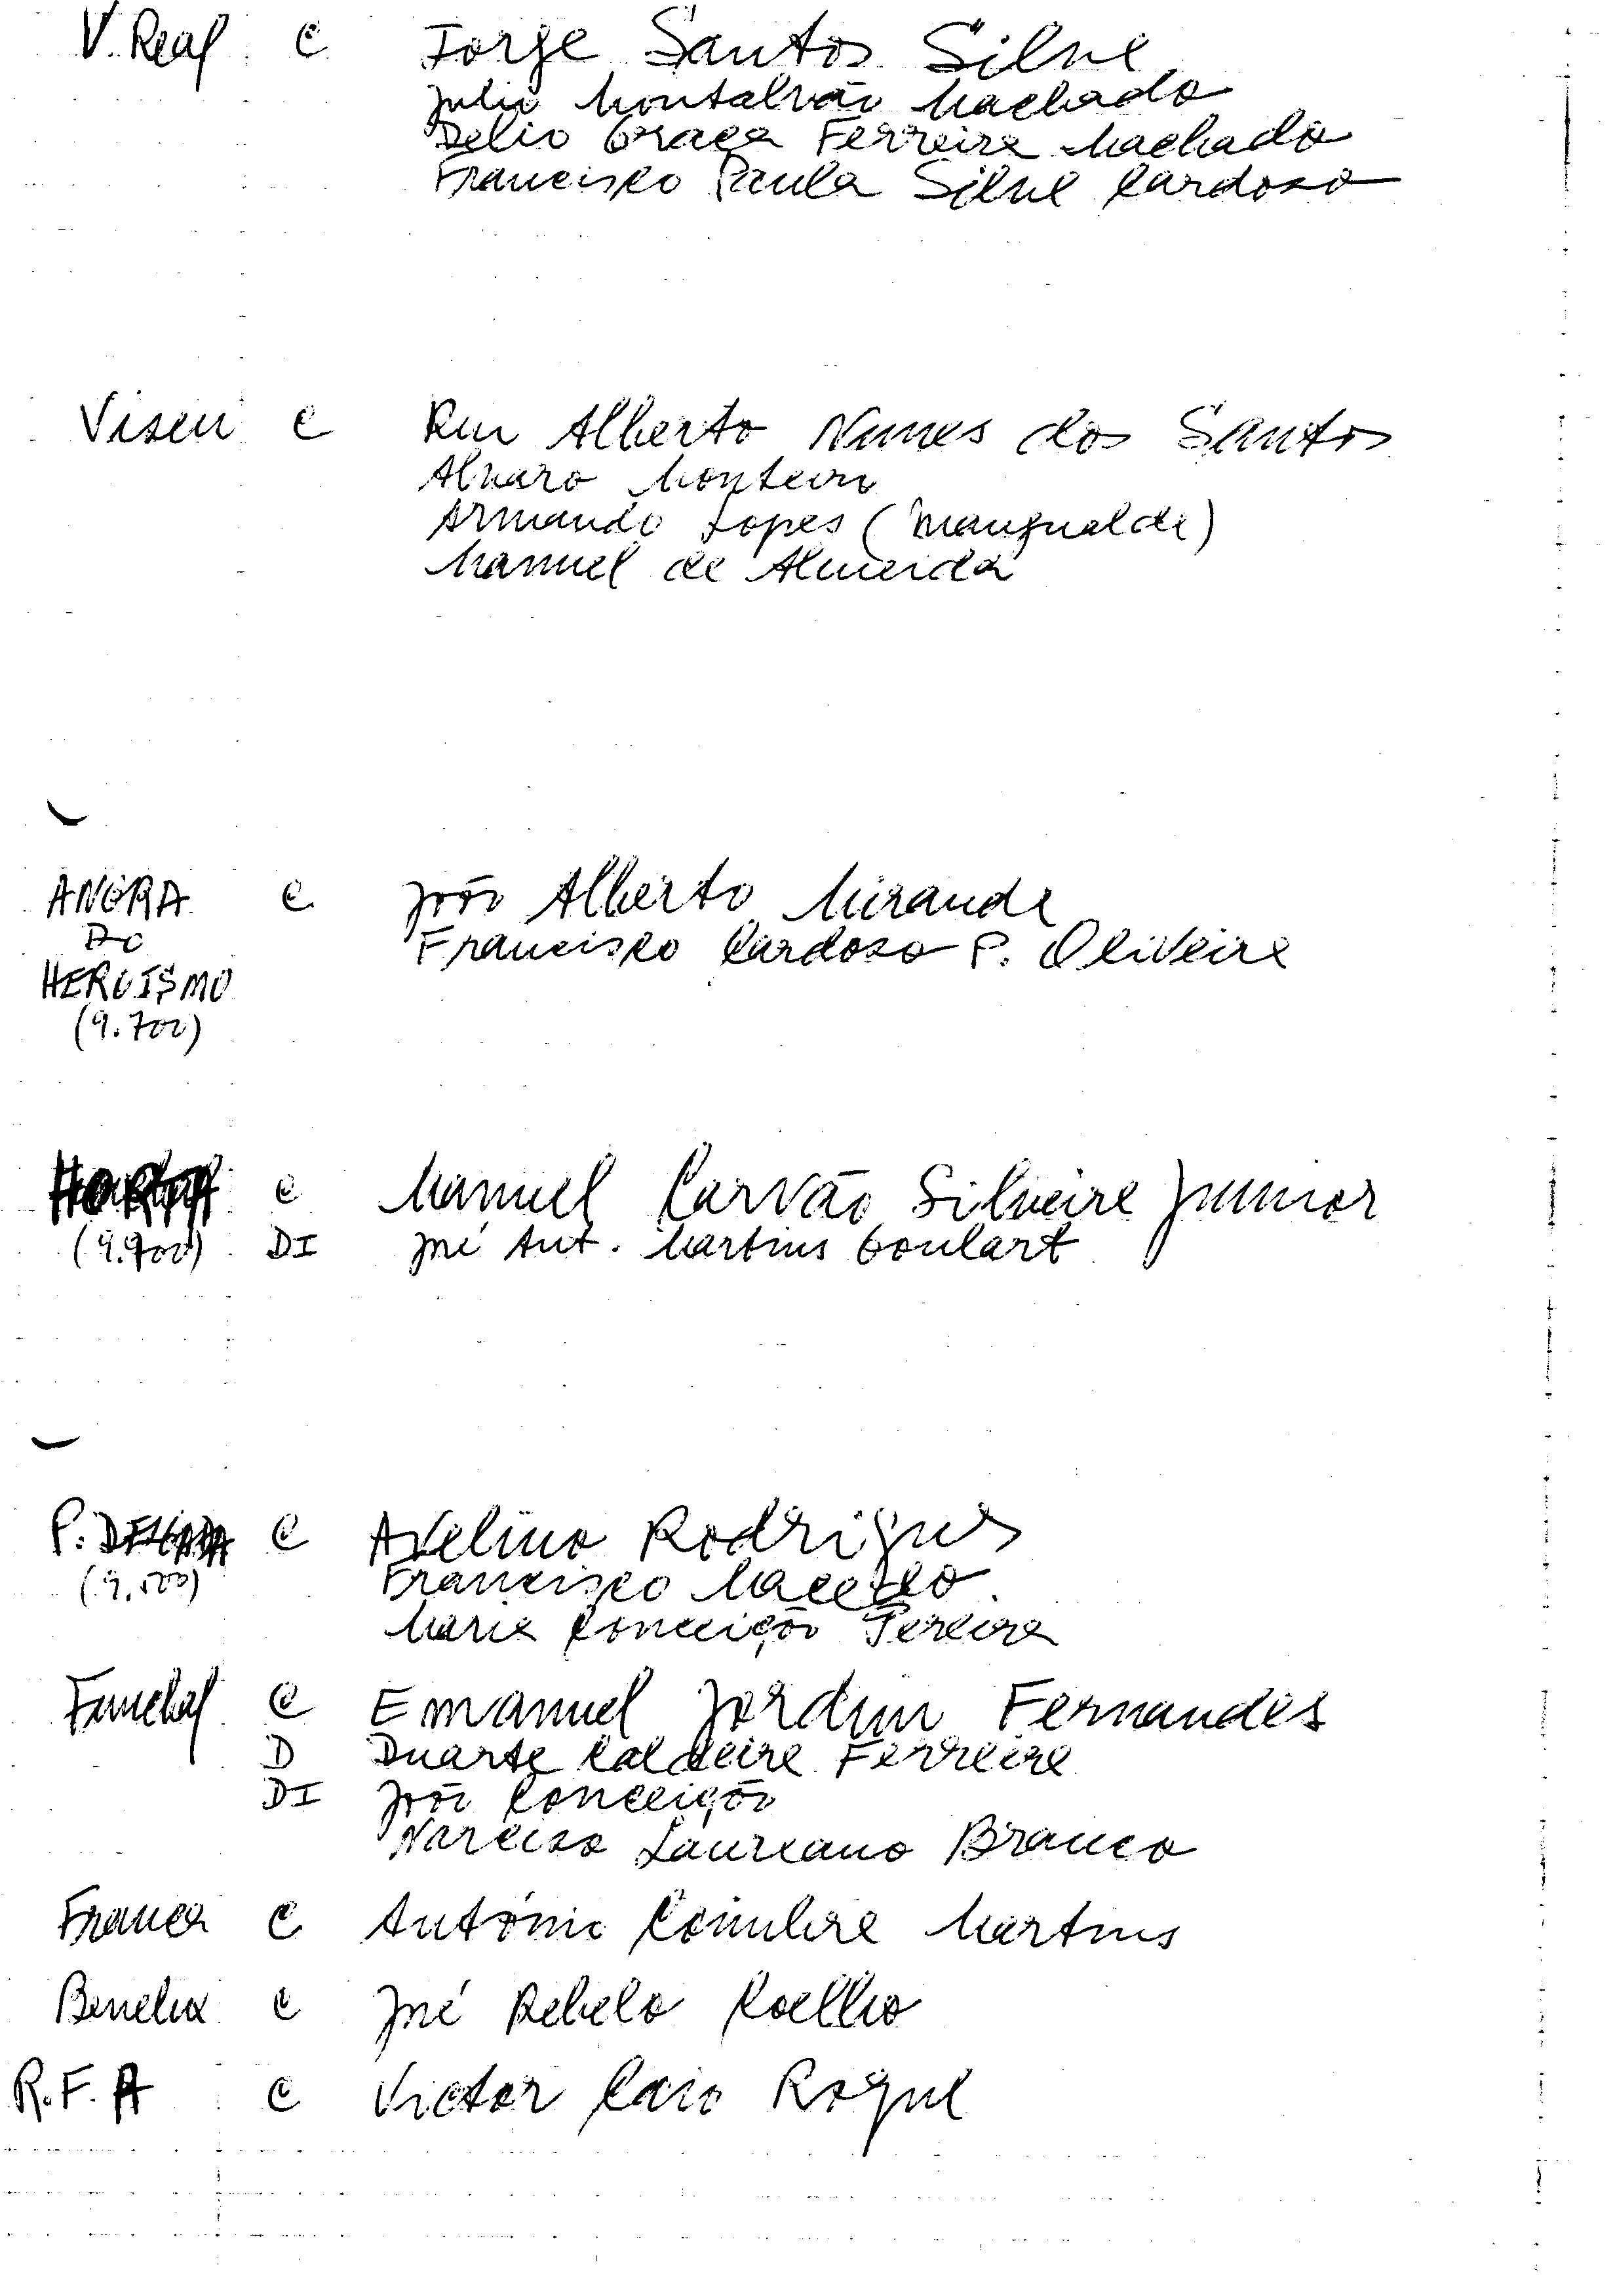 V. Real C Jorge Santos Silva
Julio Montalvão Machado
Delio Graça Ferreira Machado
Francisco Paula Silva Cardoso
Viseu C Rui Alberto Nunes dos Santos
Alvaro Monteiro
Armando Lopes (Mangualde)
Manuel de Almeida
ANGRA C João Alberto Miranda
DO Francisco Cardoso P. Oliveira
HEROISMO
(9.700)
HORTA C Manuel Carvão Silveira Junior
(9.900) DI José Ant. Martins Goulart
P. DELGADA C Avelino Rodrigues
(9.500) Francisco Macedo
Maria Conceição Pereira
Funchal C Emanuel Jardim Fernandes
D Duarte Caldeira Ferreira
DI João Conceição
Narciso Laureano Branco
França C António Coimbra Martins
Benelux C José Rebelo Coelho
R.F.A C Victor Caio Roque